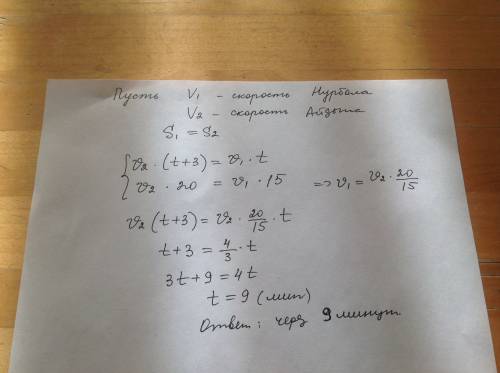 Пусть V₁ - скорость Нурбола
V₂ - скорость Айдына
S₁ = S₂
{ v₂ · (t+3) = v₁ · t
v₂ · 20 = v₁ · 15 => v₁ = v₂ · 20/15
v₂ (t+3) = v₂ · 20/15 · t
t+3 = 4/3 · t
3t + 9 = 4t
t = 9 (мин)
Ответ: через 9 минут.